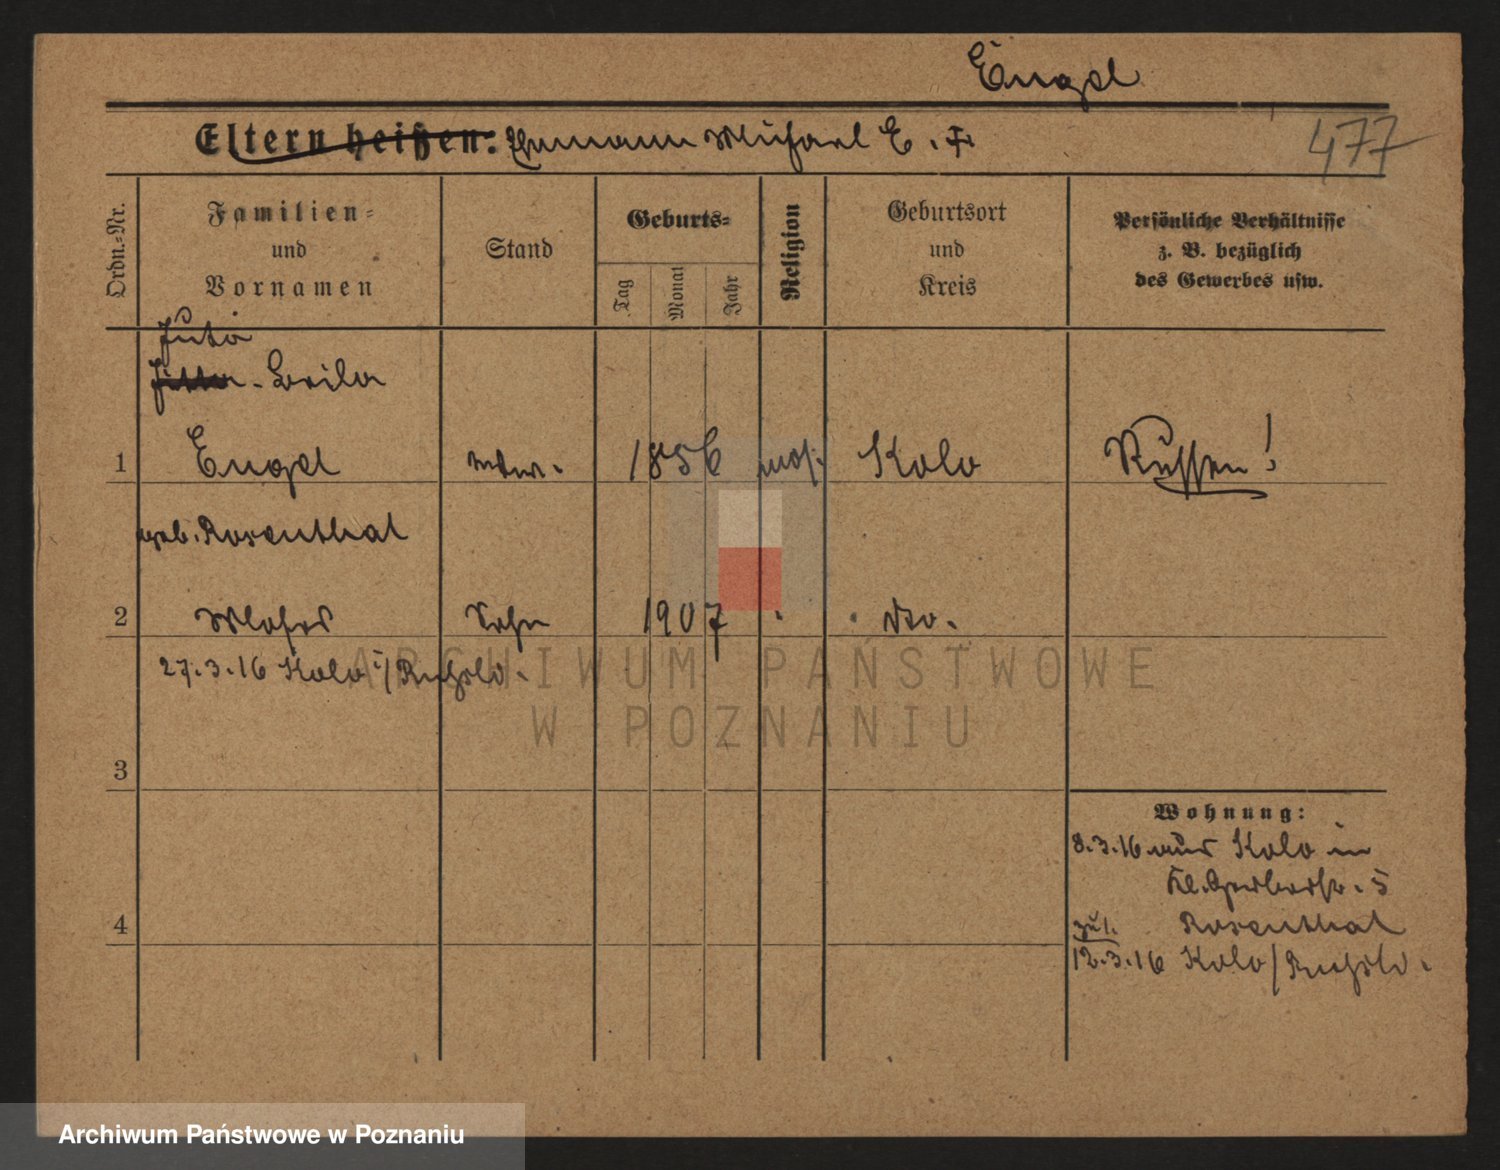 Engel
Eltern heißen: Ehemann Michael E. †.
477
Ordn.-Nr.
Familien-
und
Vornamen
Stand
Geburts-
Tag
Monat
Jahr
Religion
Geburtsort
und
Kreis
Persönliche Verhältnisse
z. B. bezüglich
des Gewerbes usw.
Juda
1 Engel Wtw. 1856 mos. Kolo Russen!
geb. Rosenthal
2 Sohn 1907 dto.
27.3.16 Kolo i/Rußld.
3
Wohnung:
8.3.16 aus Kolo in
Kl. Gerberstr. 5
4 Rosenthal
12.3.16 Kolo/Rußld.
ARCHIWUM PAŃSTWOWE
W POZNANIU
Archiwum Państwowe w Poznaniu